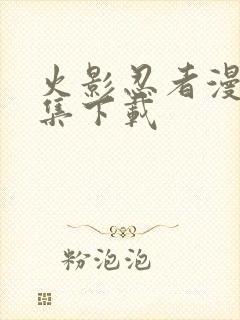 火影忍者漫
集下載
粉泡泡